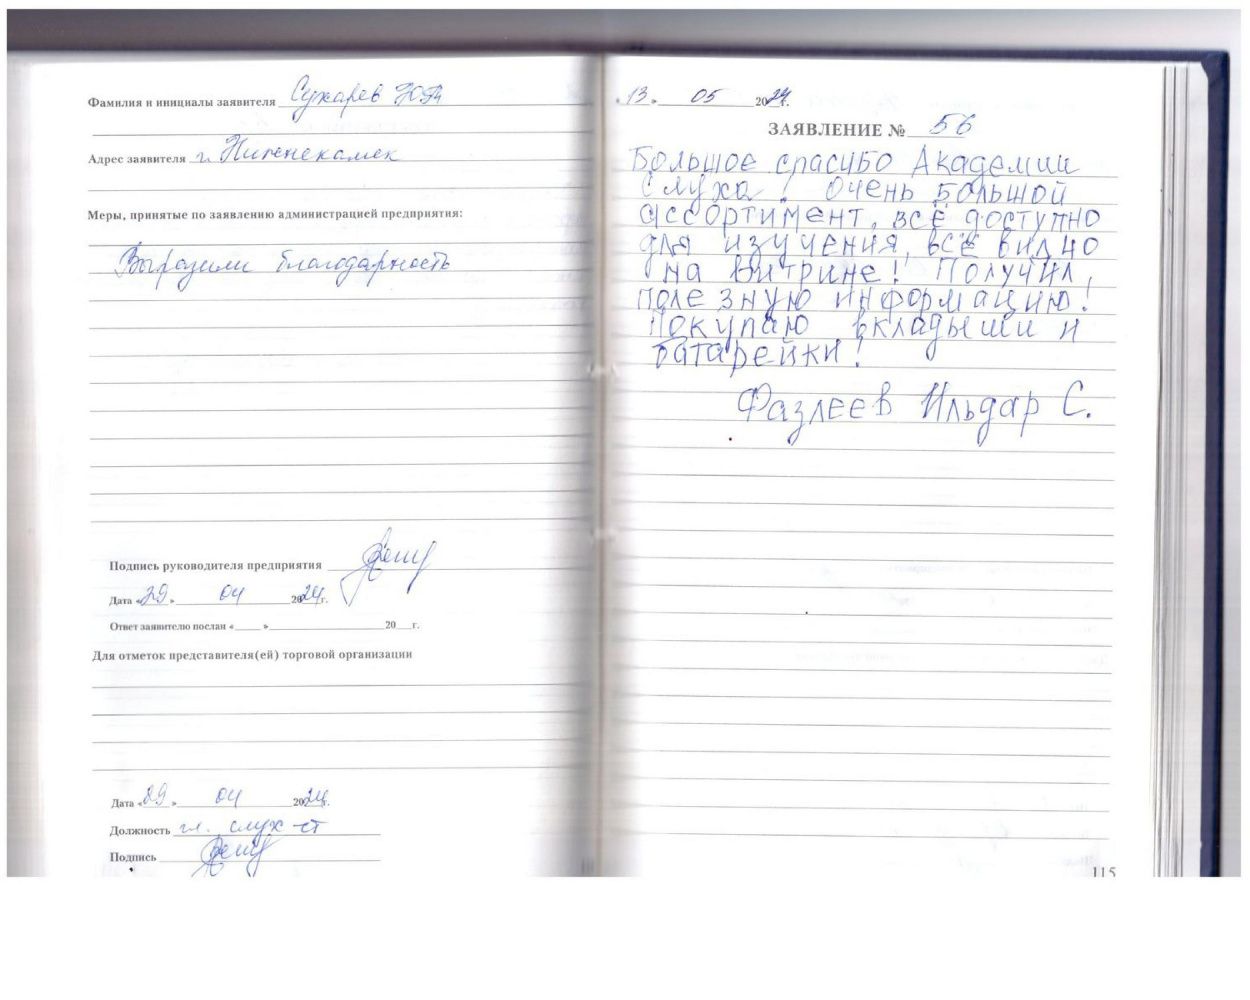 Фамилия и инициалы заявителя Сухарев
Адрес заявителя г. Нижнекамск
Меры, принятые по заявлению администрацией предприятия:
Выразили благодарность
Подпись руководителя предприятия
Дата «29» 04 2024г.
Ответ заявителю послан «____» ____ 20__г.
Для отметок представителя(ей) торговой организации
Дата «29» 04 2024г.
Должность гл. слух-ст
Подпись
«13» 05 2024г.
ЗАЯВЛЕНИЕ № 56
Большое спасибо Академии
Слуха! Очень большой
ассортимент, всё доступно
для изучения, всё видно
на витрине! Получил
полезную информацию!
Покупаю вкладыши и
батарейки!
Фазлеев Ильдар С.
115